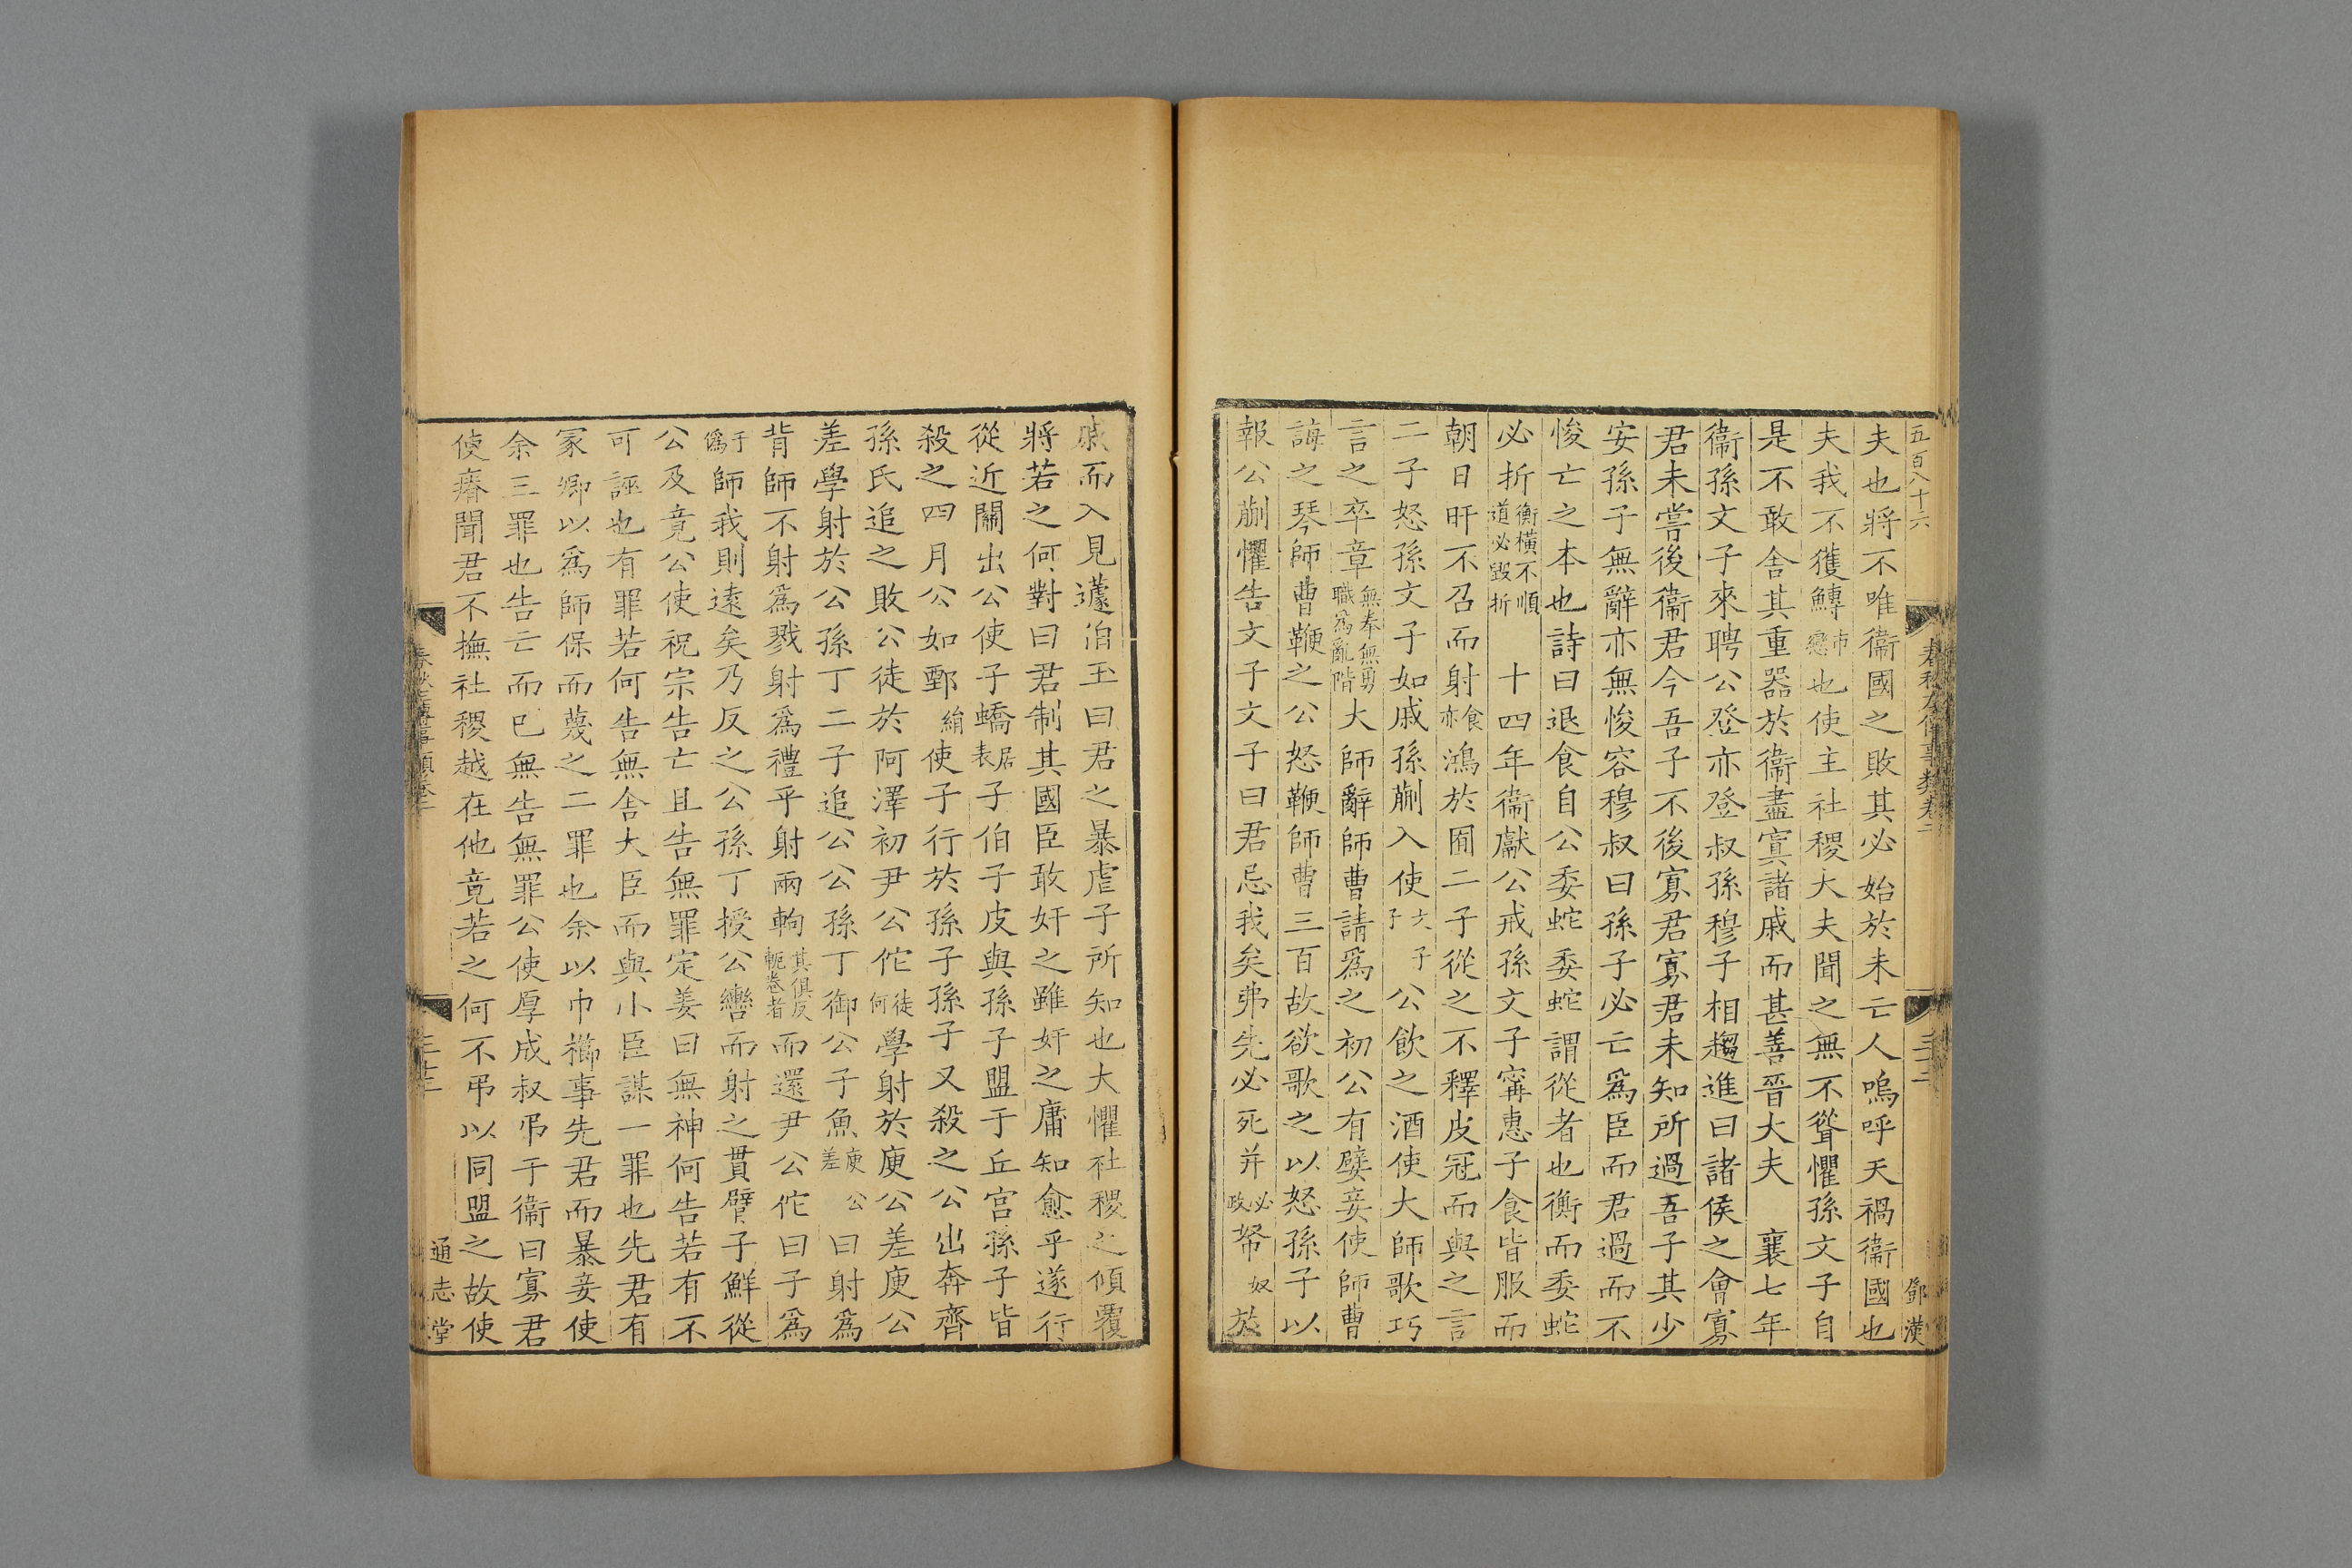 五百八十六
夫也將不唯衞國之敗其必始於未亡人嗚呼天禍衞國也
夫我不獲鱄市戀也使主社稷大夫聞之無不聳懼孫文子自
是不敢舍其重器於衞盡寘諸戚而甚善晉大夫 襄七年
衞孫文子來聘公登亦登叔孫穆子相趨進曰諸侯之會寡
君未嘗後衞君今吾子不後寡君寡君未知所過吾子其少
安孫子無辭亦無悛容穆叔曰孫子必亡爲臣而君過而不
悛亡之本也詩曰退食自公委蛇委蛇謂從者也衡而委蛇
必折衡橫不順道必毀折 十四年衞獻公戒孫文子甯惠子食皆服而
朝日旰不召而射食亦鴻於囿二子從之不釋皮冠而與之言
二子怒孫文子如戚孫蒯入使文子子公飲之酒使大師歌巧
言之卒章無拳無勇職爲亂階大師辭師曹請爲之初公有嬖妾使師曹
誨之琴師曹鞭之公怒鞭師曹三百故欲歌之以怒孫子以
報公蒯懼告文子文子曰君忌我矣弗先必死并必政帑奴於
春秋左傳事類卷二
鄧漢
戚而入見蘧伯玉曰君之暴虐子所知也大懼社稷之傾覆
將若之何對曰君制其國臣敢奸之雖奸之庸知愈乎遂行
從近關出公使子蟜居表子伯子皮與孫子盟于丘宮孫子皆
殺之四月公如鄄絹使子行於孫子孫子又殺之公出奔齊
孫氏追之敗公徒於阿澤初尹公佗徒何學射於庾公差庾公
差學射於公孫丁二子追公公孫丁御公子魚庾公差曰射爲
背師不射爲戮射爲禮乎射兩軥其俱反軛卷者而還尹公佗曰子爲
于僞師我則遠矣乃反之公孫丁授公轡而射之貫臂子鮮從
公及竟公使祝宗告亡且告無罪定姜曰無神何告若有不
可誣也有罪若何告無舍大臣而與小臣謀一罪也先君有
冢卿以爲師保而蔑之二罪也余以巾櫛事先君而暴妾使
余三罪也告亡而已無告無罪公使厚成叔弔于衞曰寡君
使瘠聞君不撫社稷越在他竟若之何不弔以同盟之故使
通志堂